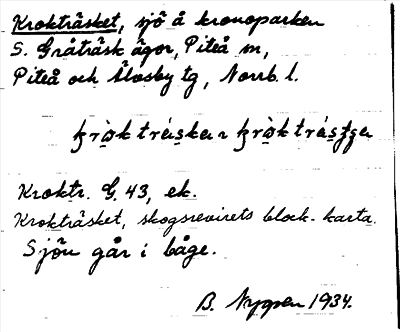 Krokträsket, sjö å kronoparken
S. Gråträsk ägor, Piteå m,
Piteå och Älvsby tg, Norrb. l.
Kroktr. G. 43, ek.
Krokträsket, skogsrevirets block-karta.
Sjön går i båge.
B. 1934.